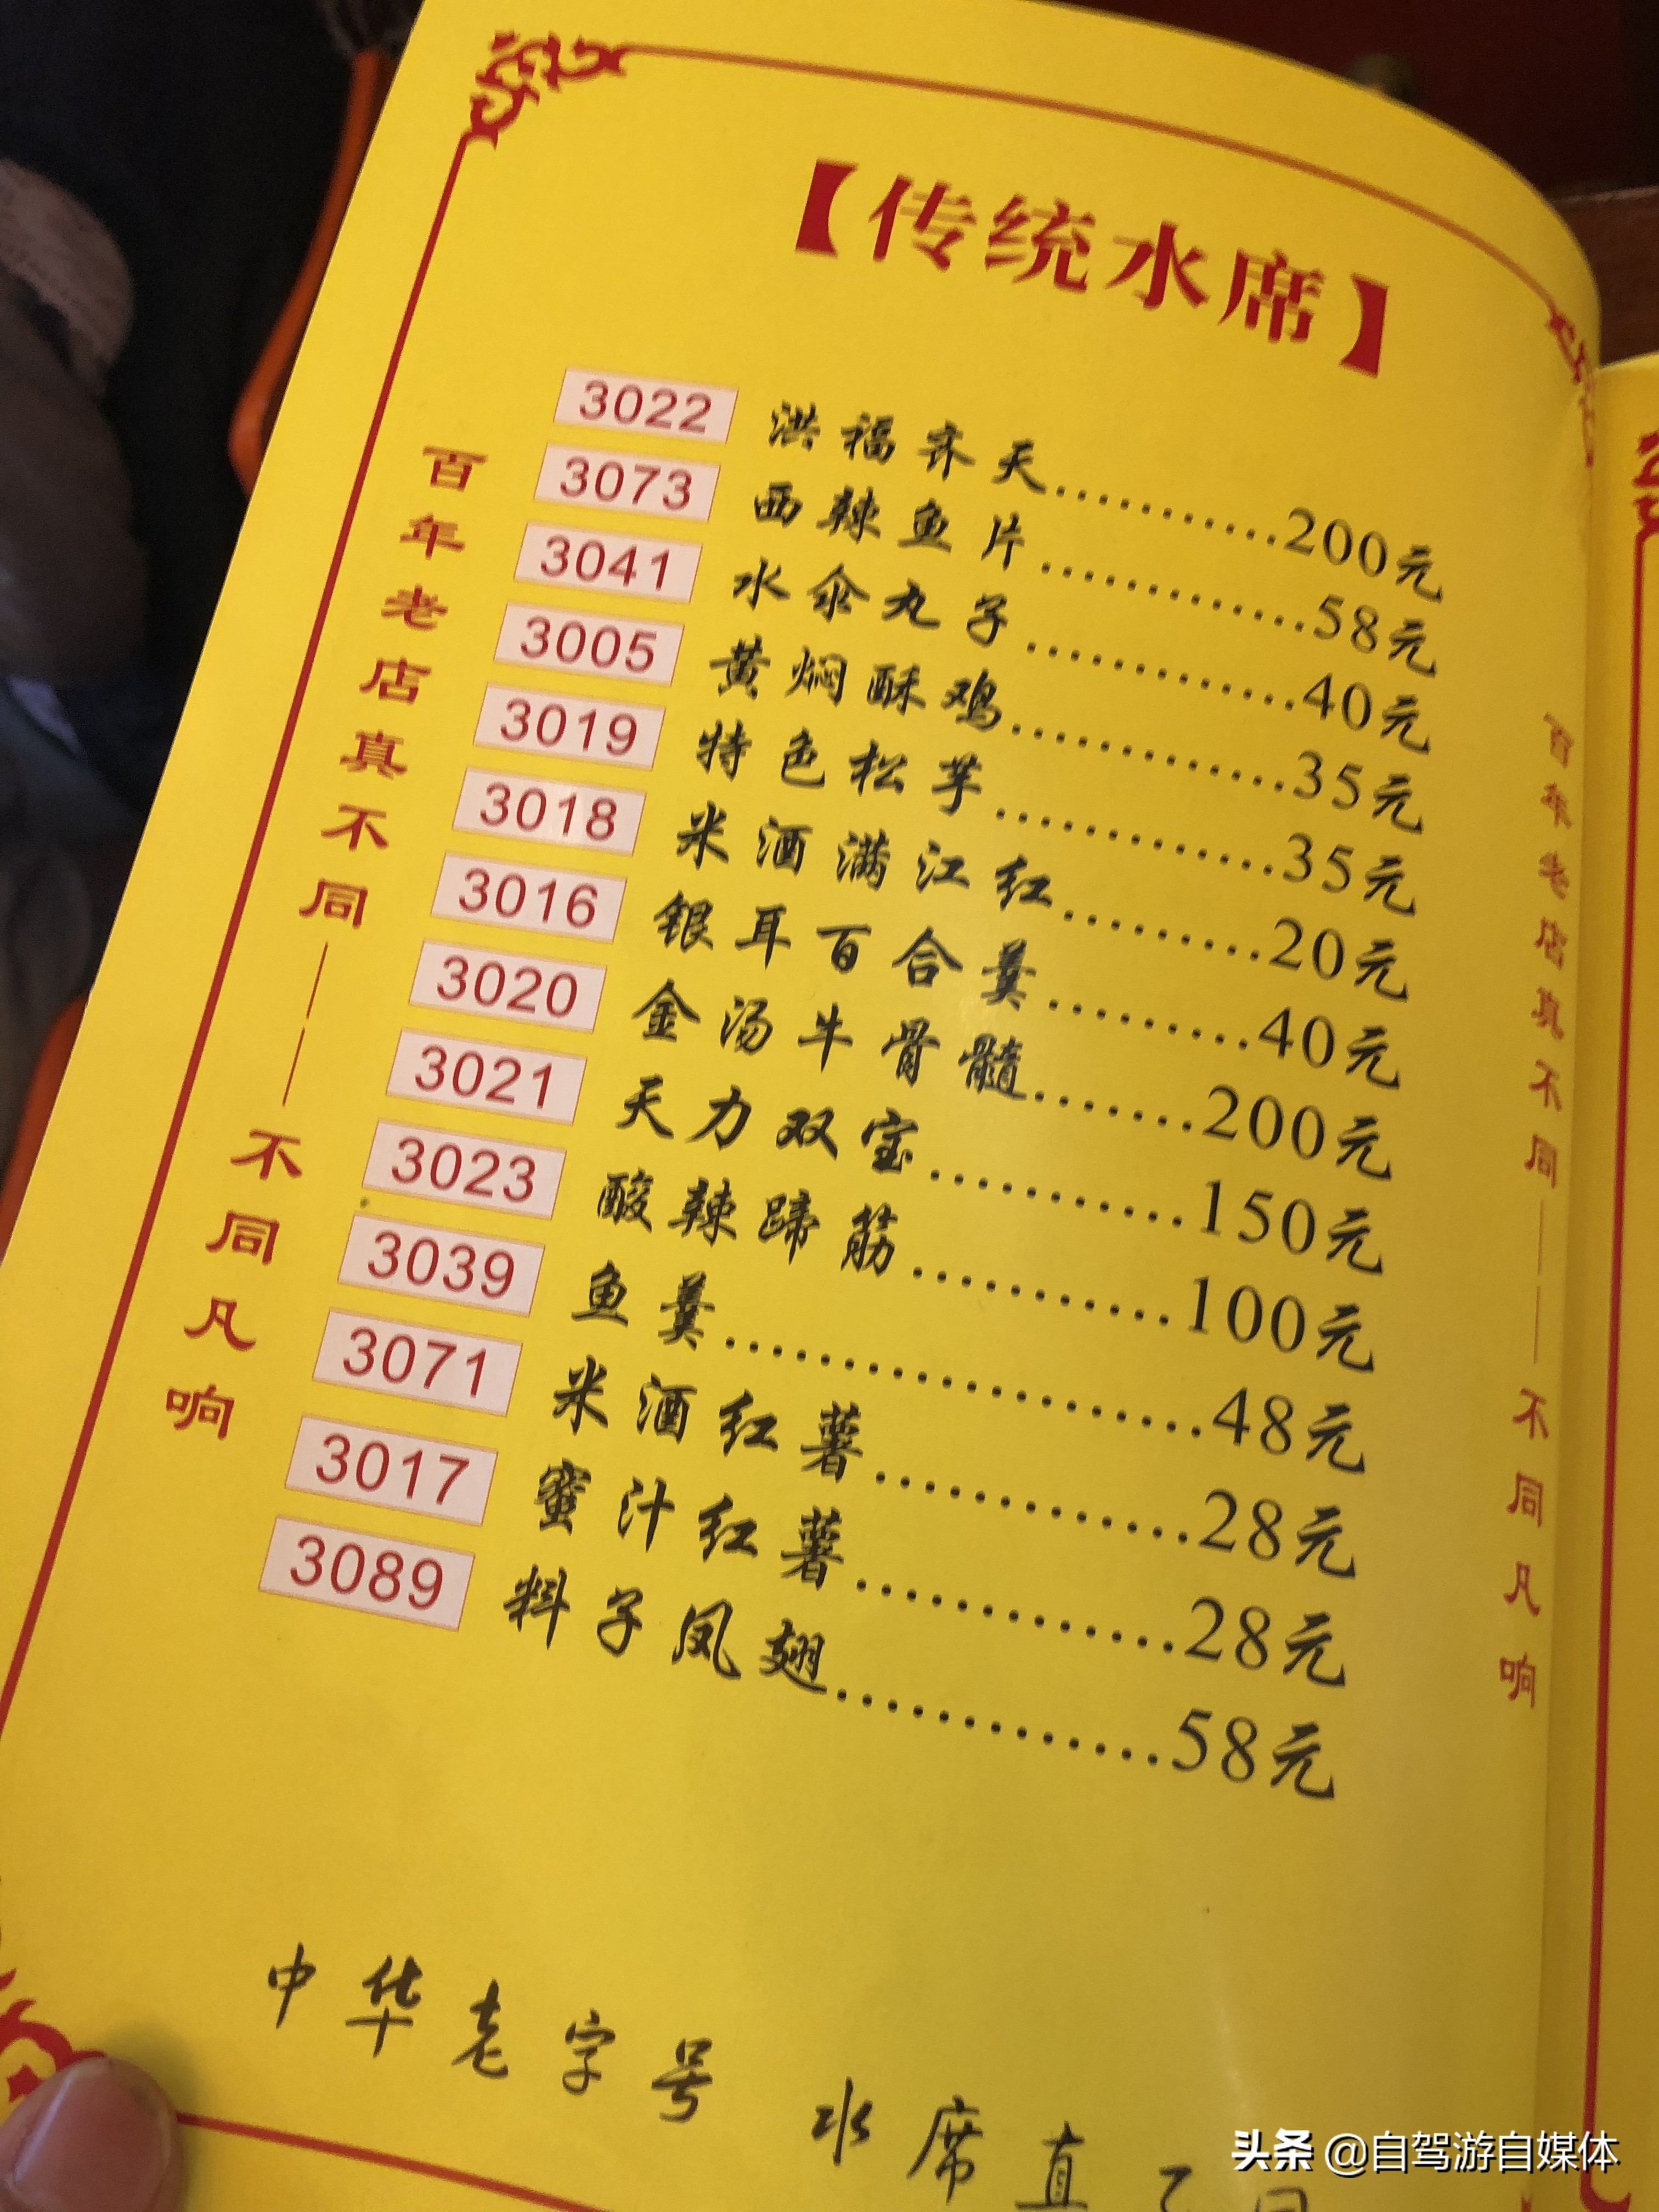 【传统水席】
3022 洪福齐天..........200元
3073 西辣鱼片............58元
3041 水汆丸子............40元
3005 黄焖酥鸡............35元
3019 特色松芋............35元
3018 米酒满江红.........20元
3016 银耳百合羹.........40元
3020 金汤牛骨髓.......200元
3021 天力双宝...........150元
3023 酸辣蹄筋...........100元
3039 鱼羹....................48元
3071 米酒红薯.............28元
3017 蜜汁红薯.............28元
3089 料子凤翅.............58元
百年老店真不同——不同凡响
百年老店真不同——不同凡响
中华老字号 水席真不同
头条 @自驾游自媒体